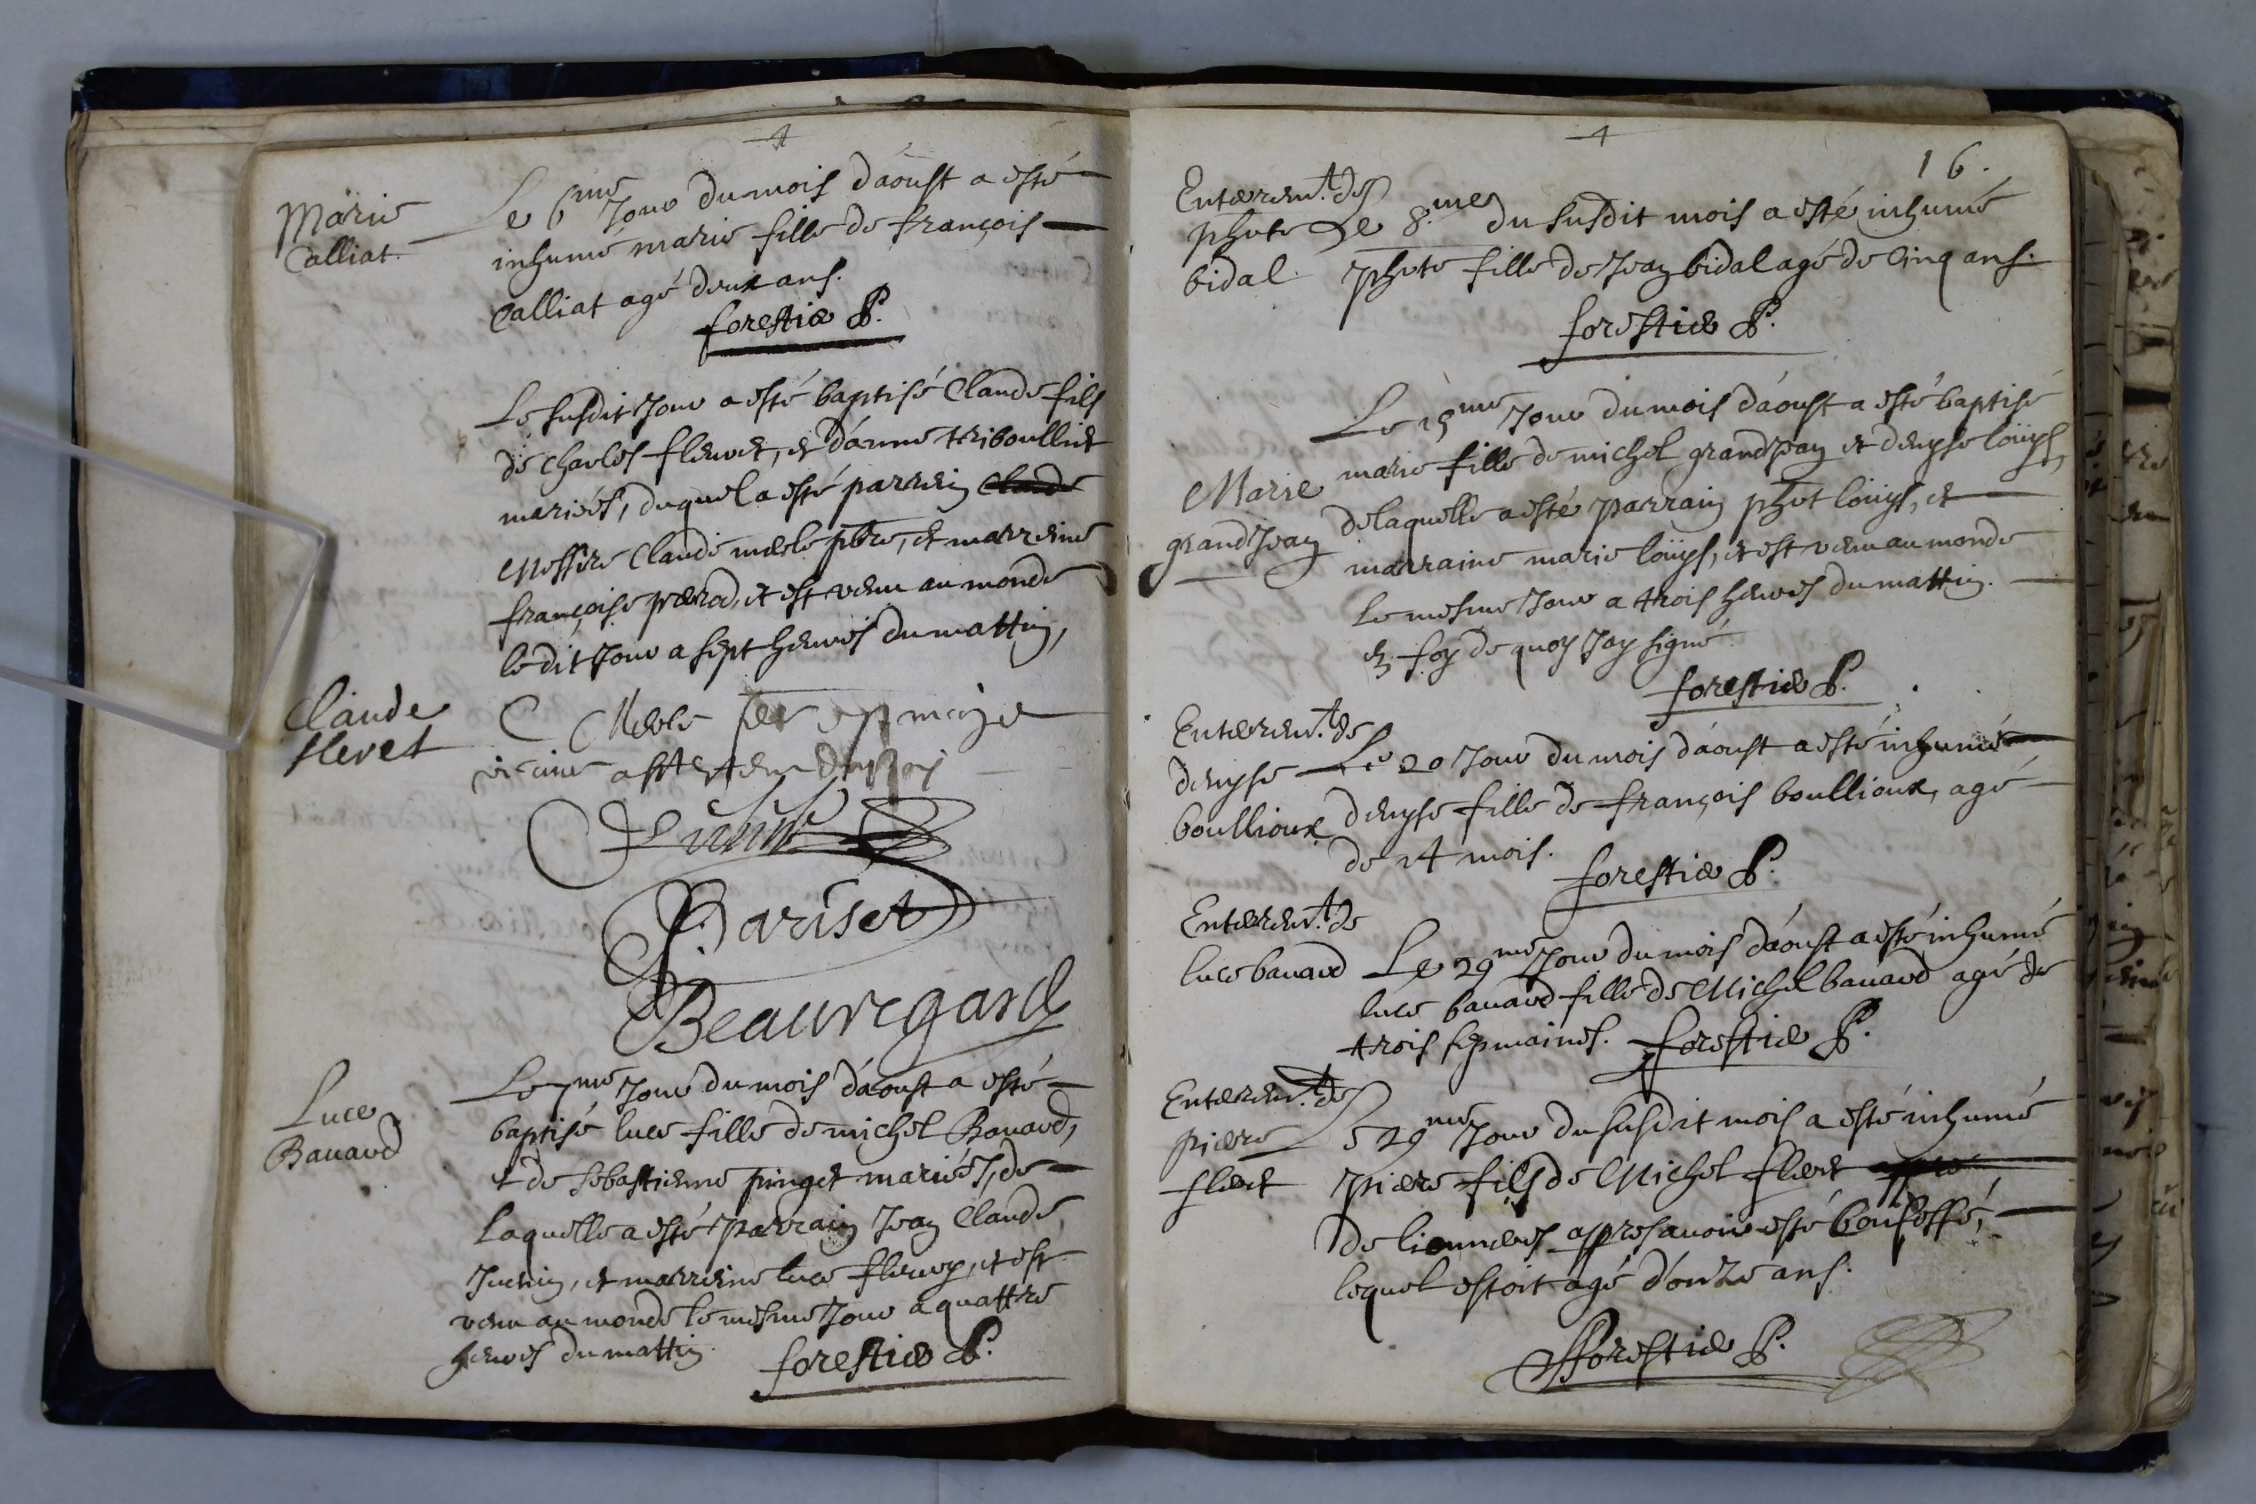 Marie
Calliat.
Le 6me Jour du mois d'aoust a esté
inhumé marie fille de françois
Calliat agé deux ans.
forestier P.
Le susdit Jour a esté baptisé Claude fils
de Charles fleuret, et d'anne triboulliet
mariés, duquel a esté parrein
Messire Claude merle pbre, et marreine
françoise perrod, et est venu au monde
ledit Jour a sept heures du mattin,
Claude
fleret
C Merle
Pariset
Beauregard
Luce
Bauard
Le 7me Jour du mois d'aoust a esté
baptisé luce fille de michel Bauard,
et de sebastienne pinget mariés, de
laquelle a esté parrain Jean Claude
Juenin, et marreine luce fleury, et est
venu au monde le mesme Jour a quattre
heures du mattin.
forestier P.
16.
Enterem.t de
phote
bidal.
Le 8.me du susdit mois a esté inhumé
phote fille de Jean bidal agé de Cinq ans.
forestier P.
Marie
grandJean
Le 15me Jour du mois d'aoust a esté baptisé
marie fille de michel grandJean et denyse loüys
de laquelle a esté parrain phot loüys, et
marraine marie loüys, et est venu au monde
le mesme Jour a trois heures du mattin.
en foy de quoy Jay signé
forestier P.
Enterem.t de
denyse
boullioux
Le 20 Jour du mois d'aoust a esté inhumé
denyse fille de françois boullioux, agé
de 14 mois.
forestier P.
Enterem.t de
luce bauard
Le 29me Jour du mois d'aoust a esté inhumé
luce bauard fille de Michel bauard agé de
trois sepmaines. forestier P.
Enterem.t de
pierre
fleret
Le 29me Jour du susdit mois a esté inhumé
pierre fils de Michel fleret
de apres auoir esté Confessé,
lequel estoit agé d'onze ans.
forestier P.